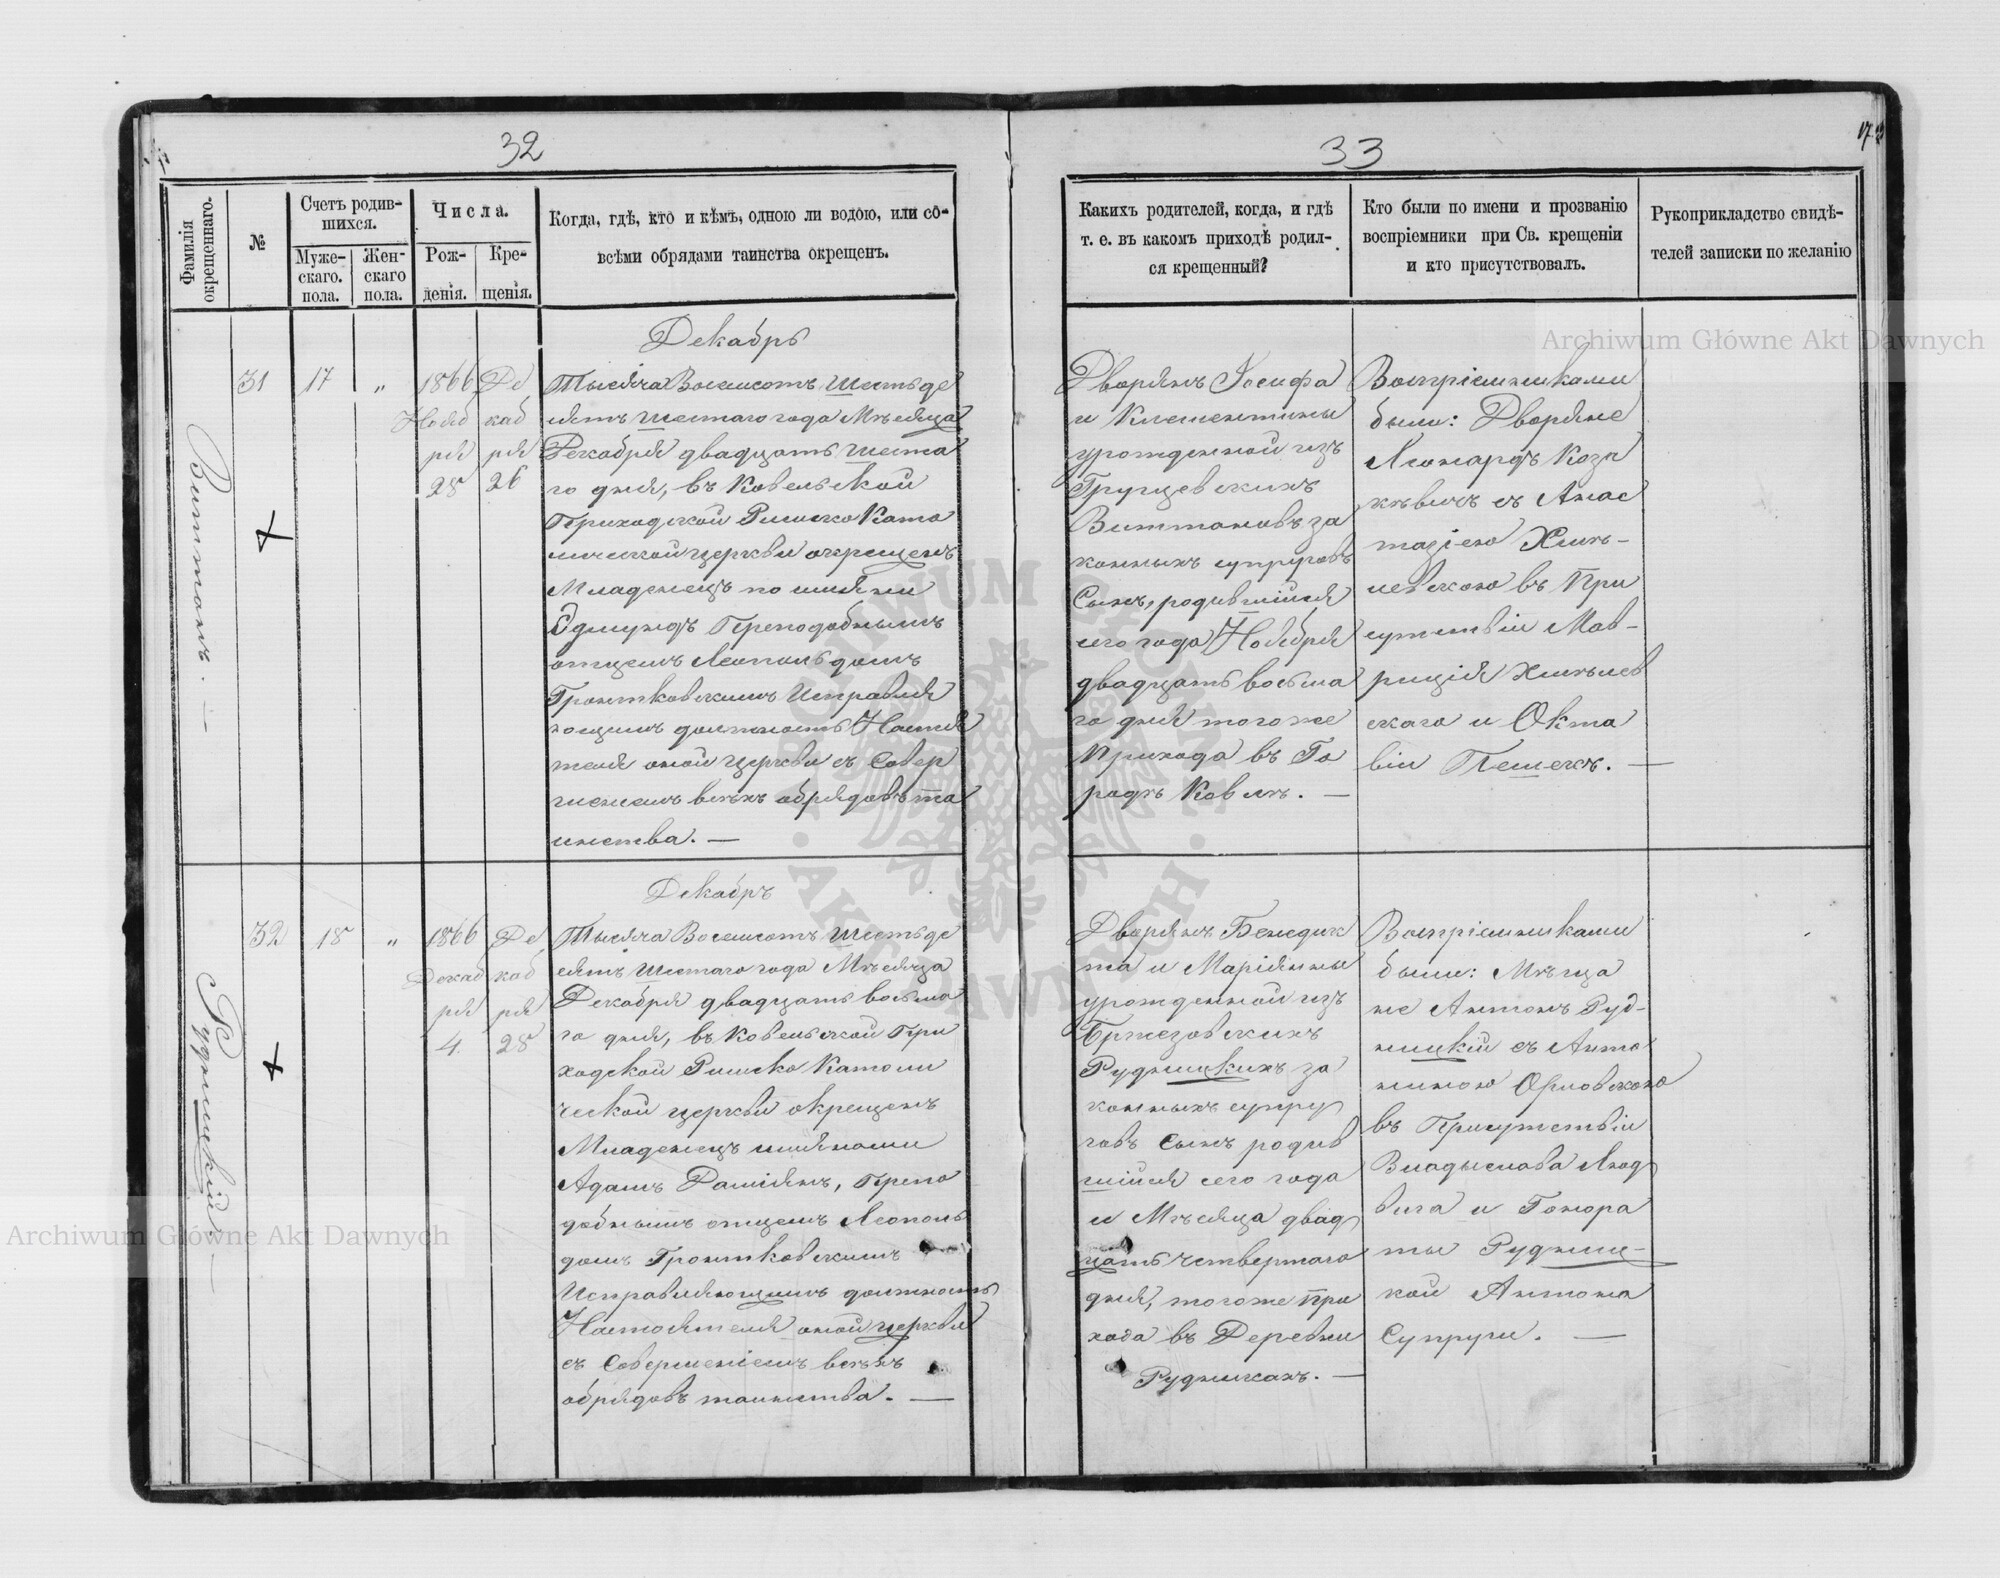 32
Фамилія окрещеннаго.
№
Счетъ родив-
шихся.
Муже-
скаго.
пола.
Жен-
скаго
пола.
Числа.
Рож-
денія.
Кре-
щенія.
Когда, гдѣ, кто и кѣмъ, одною ли водою, или со-
всѣми обрядами таинства окрещенъ.
Виттонъ. —
31
17
"
1866
Нояб
ря
28
Де
каб
ря
26
Декабрь
Тысяча Восемсотъ Шестьде
сятъ Шестаго года Мѣсяца
Декабря двадцать шеста
го дня, въ Ковельской
Приходской Римско Като
лической церкви окрещенъ
Младенецъ по имяни
Эдмундъ Преподобнымъ
отцемъ Леопольдомъ
Гронтковскимъ Исправля
ющимъ должность Настоя
теля оной церкви съ Совер
шенемъ всѣхъ обрядовъ та
инства. —
Рудницкій —
32
18
"
1866
Декаб
ря
4.
Де
каб
ря
28
Декабрь
Тысяча Восемсотъ Шестьде
сятъ Шестаго года Мѣсяца
Декабря двадцать восьма
го дня, въ Ковельской При
ходской Римско Католи
ческой церкви окрещенъ
Младенецъ имянами
Адамъ Даміянъ, Препо
добнымъ отцемъ Леополь
домъ Гронтковскимъ
Исправляющимъ должность
Настоятеля оной церкви
съ Совершеніемъ всѣхъ
обрядовъ таинства. —
33
17
Какихъ родителей, когда, и гдѣ
т. е. въ какомъ приходѣ родил-
ся крещенный?
Кто были по имени и прозванію
воспріемники при Св. крещеніи
и кто присутствовалъ.
Рукоприкладство свидѣ-
телей записки по желанію
Дворянъ Іосифа
и Клементины
урожденной изъ
Виттоновъ за
конныхъ супруговъ
Сынъ, родившійся
сего года Ноября
двадцать восьма
го дня того же
Прихода въ Го
родѣ Ковлѣ. —
Воспріемниками
были: Дворяне
Леонардъ Коза
кѣвичъ съ Анас
тазіею Хмѣ-
левскою въ При
сутствіи Мав-
риція Хмѣлев
скаго и Окта
віи Пешекъ. —
Дворянъ Бенедик
та и Маріянны
урожденной изъ
Бржезовскихъ
Рудницкихъ за
конныхъ супру
говъ Сынъ родив
шійся сего года
и Мѣсяца двад
цать четвертаго
дня, тогоже при
хода въ Деревни
Рудникахъ. —
Воспріемниками
были: Мѣща
не Антонъ Руд-
ницкій съ Анто
ниною Орловскою
въ Присутствіи
Владыслава Люд
вига и Гонора
ты Рудниц-
кой Антона
Супруги. —
Archiwum Główne Akt Dawnych
Archiwum Główne Akt Dawnych